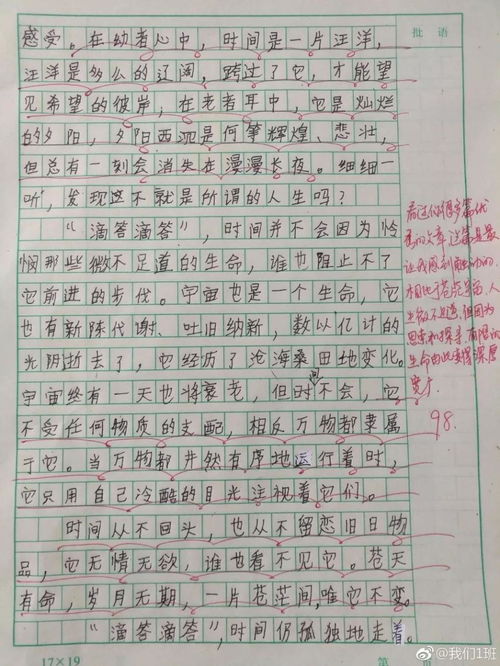 批语
感受。在幼者心中，时间是一片汪洋，
汪洋是多么的辽阔，跨过了它，才能望
见希望的彼岸，在老者耳中，它是灿烂
的夕阳，夕阳西沉是何等辉煌、悲壮，
但总有一刻会消失在漫漫长夜。细细一
听，发现这不就是所谓的人生吗？
“滴答滴答”，时间并不会因为怜
悯那些微不足道的生命，谁也阻止不了
它前进的步伐。宇宙也是一个生命，它
也有新陈代谢、吐旧纳新，数以亿计的
光阴逝去了，它经历了沧海桑田地变化。
宇宙终有一天也将衰老，但时间不会，它
不受任何物质的支配，相反万物都隶属
于它。当万物都井然有序地运行着时，
它只用自己冷酷的目光注视着它们。
时间从不回头，也从不留恋旧日物
品，它无情无欲，谁也看不见它。苍天
有命，岁月无期，一片苍茫间，唯它不变。
“滴答滴答”，时间仍孤独地走着。
看过你很多篇优
秀的文章，这篇是最
让我感到触动的。
相比于苍茫宇宙，人
生微不足道，但因为
思索和探寻，有限的
生命由此变得深厚
宽广
98.
17×19
第
@我们1班